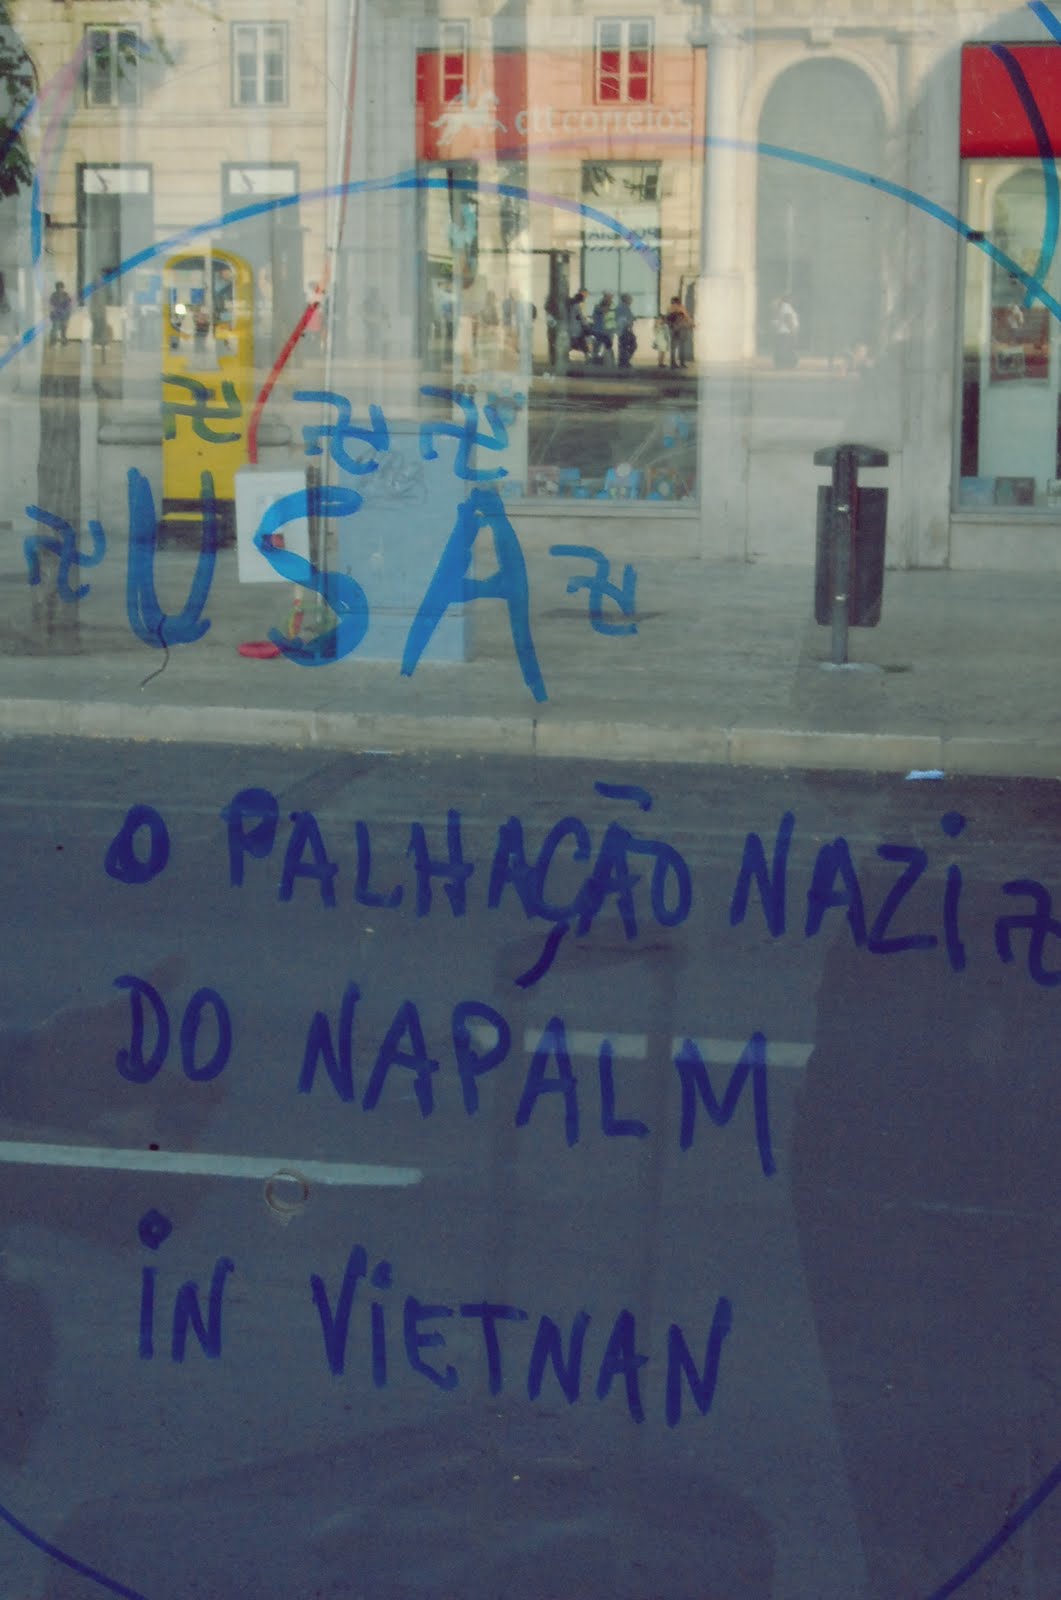 ctt correios
USA
O PALHAÇÃO NAZI
DO NAPALM
IN VIETNAN